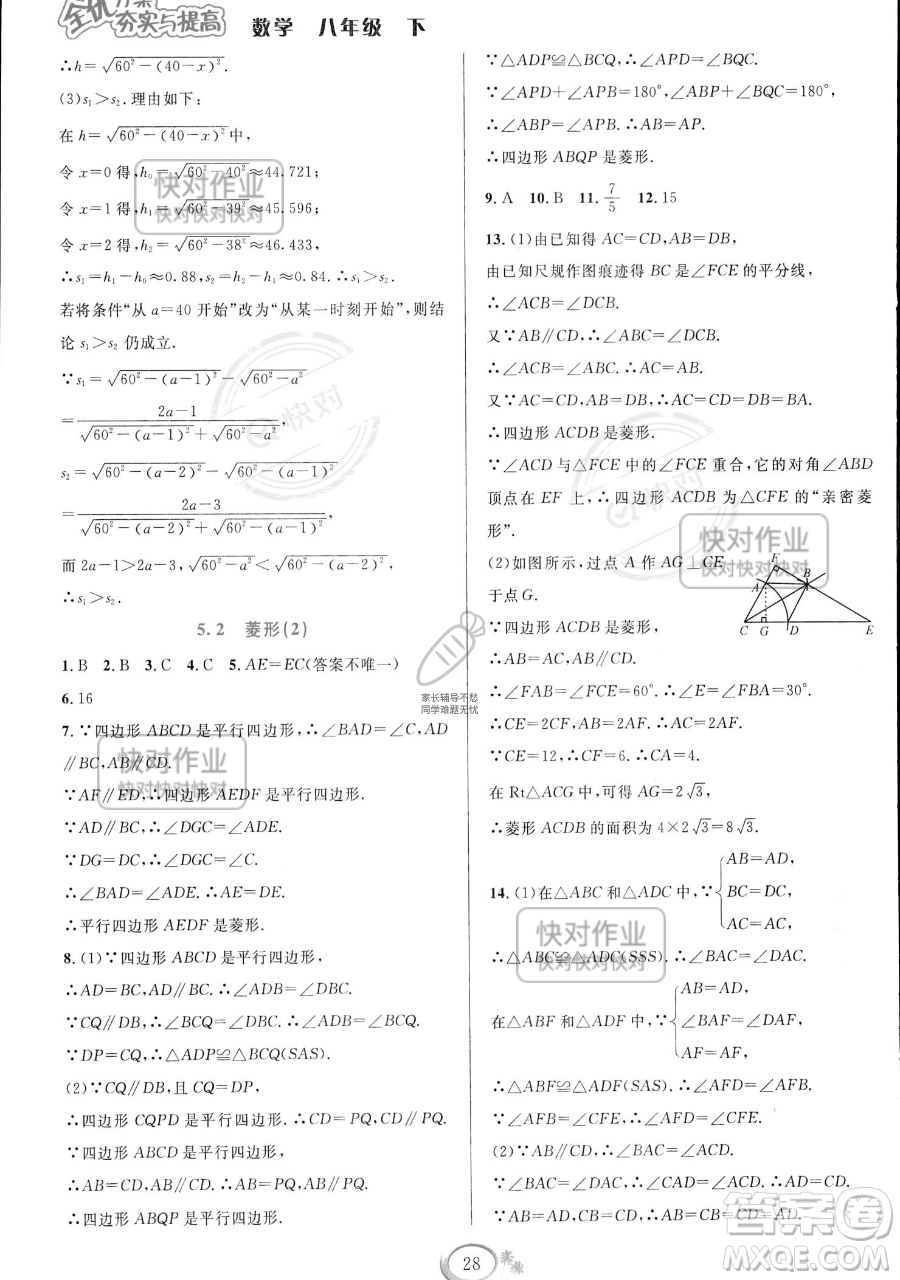 全优方案
夯实与提高 数学 八年级 下
∴h=√(60²-(40-x)²).
(3)s₁>s₂.理由如下:
在 h=√(60²-(40-x)²)中,
令 x=0 得,h₀=√(60²-40²)≈44.721;
令 x=1 得,h₁=√(60²-39²)≈45.596;
令 x=2 得,h₂=√(60²-38²)≈46.433,
∴s₁=h₁-h₀≈0.88,s₂=h₂-h₁≈0.84.∴s₁>s₂.
若将条件“从 a=40 开始”改为“从某一时刻开始”,则结
论 s₁>s₂ 仍成立.
∵s₁=√(60²-(a-1)²)-√(60²-a²)
=(2a-1)/(√(60²-(a-1)²)+√(60²-a²)),
s₂=√(60²-(a-2)²)-√(60²-(a-1)²)
=(2a-3)/(√(60²-(a-2)²)+√(60²-(a-1)²)),
而 2a-1>2a-3,√(60²-a²)<√(60²-(a-2)²),
∴s₁>s₂.
5.2 菱形(2)
1.B 2.B 3.C 4.C 5.AE=EC(答案不唯一)
6.16
7.∵四边形 ABCD 是平行四边形,∴∠BAD=∠C,AD
∥BC,AB∥CD.
∵AF∥ED,∴四边形 AEDF 是平行四边形.
∵AD∥BC,∴∠DGC=∠ADE.
∵DG=DC,∴∠DGC=∠C.
∴∠BAD=∠ADE.∴AE=DE.
∴平行四边形 AEDF 是菱形.
8.(1)∵四边形 ABCD 是平行四边形,
∴AD=BC,AD∥BC.∴∠ADB=∠DBC.
∵CQ∥DB,∴∠BCQ=∠DBC.∴∠ADB=∠BCQ.
∵DP=CQ,∴△ADP≌△BCQ(SAS).
(2)∵CQ∥DB,且 CQ=DP,
∴四边形 CQPD 是平行四边形.∴CD=PQ,CD∥PQ.
∵四边形 ABCD 是平行四边形,
∴AB=CD,AB∥CD.∴AB=PQ,AB∥PQ.
∴四边形 ABQP 是平行四边形.
∵△ADP≌△BCQ,∴∠APD=∠BQC.
∵∠APD+∠APB=180°,∠ABP+∠BQC=180°,
∴∠ABP=∠APB.∴AB=AP.
∴四边形 ABQP 是菱形.
9.A 10.B 11.7/5 12.15
13.(1)由已知得 AC=CD,AB=DB,
由已知尺规作图痕迹得 BC 是∠FCE 的平分线,
∴∠ACB=∠DCB.
又∵AB∥CD,∴∠ABC=∠DCB.
∴∠ACB=∠ABC.∴AC=AB.
又∵AC=CD,AB=DB,∴AC=CD=DB=BA.
∴四边形 ACDB 是菱形.
∵∠ACD 与△FCE 中的∠FCE 重合,它的对角∠ABD
顶点在 EF 上,∴四边形 ACDB 为△CFE 的“亲密菱
形”.
(2)如图所示,过点 A 作 AG⊥CE
于点 G.
F
A
B
C G D E
∵四边形 ACDB 是菱形,
∴AB=AC,AB∥CD.
∴∠FAB=∠FCE=60°,∠E=∠FBA=30°.
∴CE=2CF,AB=2AF.∴AC=2AF.
∵CE=12,∴CF=6.∴CA=4.
在 Rt△ACG 中,可得 AG=2√3,
∴菱形 ACDB 的面积为 4×2√3=8√3.
14.(1)在△ABC 和△ADC 中,∵{AB=AD,
BC=DC,
AC=AC,
∴△ABC≌△ADC(SSS).∴∠BAC=∠DAC.
在△ABF 和△ADF 中,∵{AB=AD,
∠BAF=∠DAF,
AF=AF,
∴△ABF≌△ADF(SAS).∴∠AFB=∠AFD.
∵∠AFB=∠CFE,∴∠AFD=∠CFE.
(2)∵AB∥CD,∴∠BAC=∠ACD.
∵∠BAC=∠DAC,∴∠DAC=∠ACD.∴AD=CD.
∵AB=AD,CB=CD,∴AB=CB=CD=AD.
28
快对作业
快对快对快对
快对
快对作业
快对快对快对
快对
家长辅导不愁
同学难题无忧
快对作业
快对快对快对
快对作业
快对快对快对
答案圈
MXQE.COM